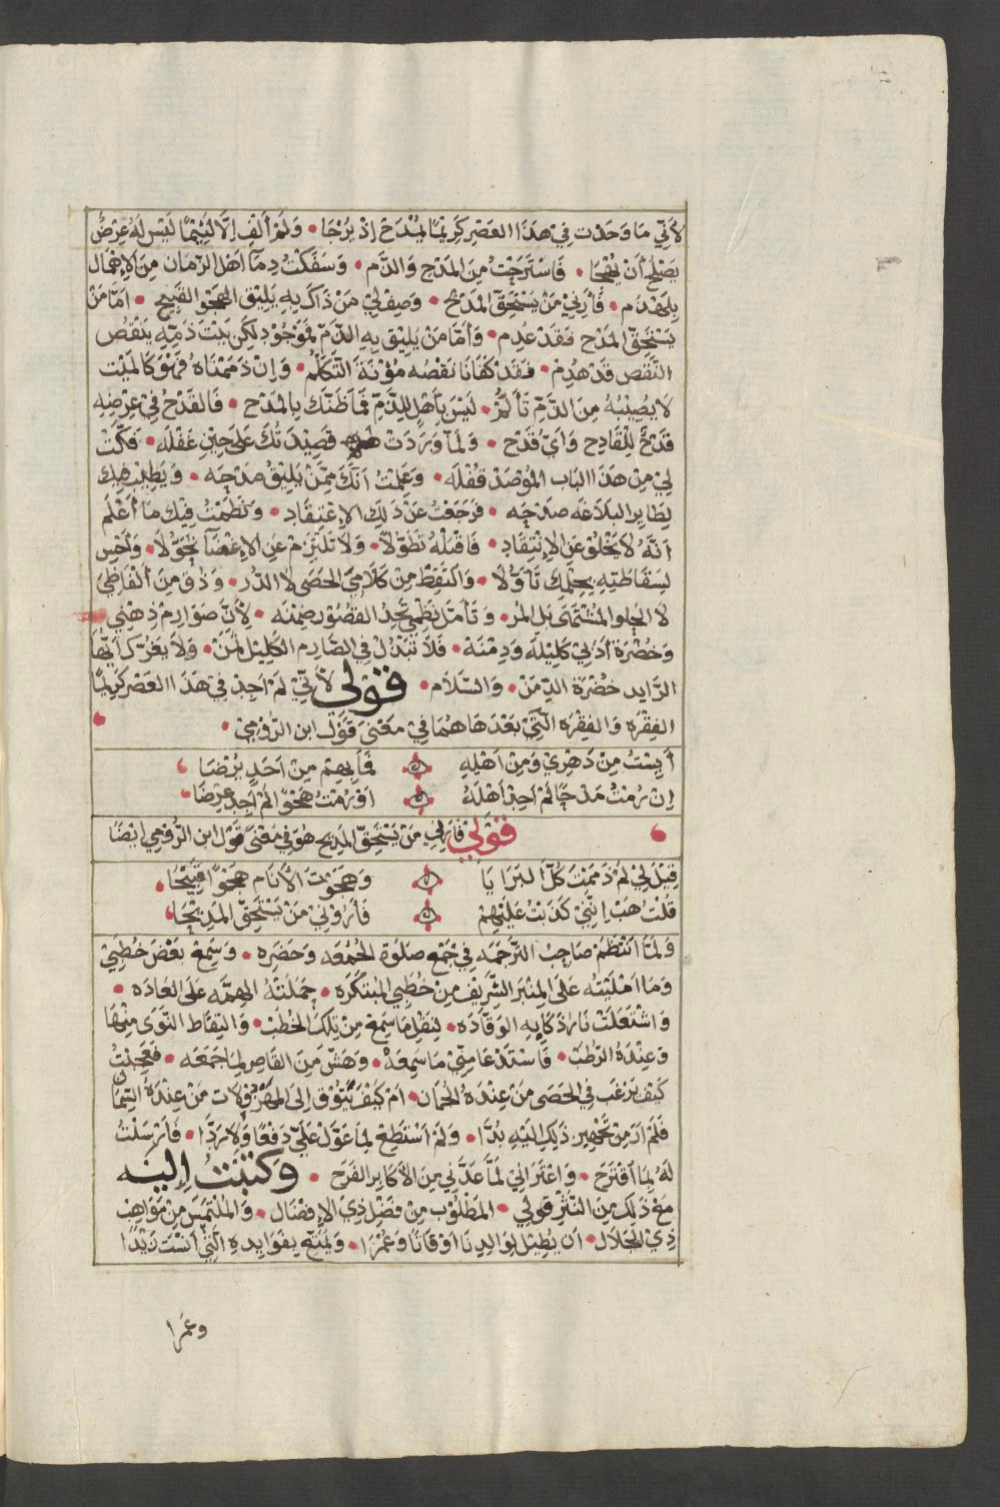 لأَنِّي مَا وَجَدْت فِي هَذَا العَصْرِ كَرِيمًا لِمُدَّاحٍ إِذْ يُرْجَا • وَلَمْ أَلْفِ إِلَّا لَئِيْمًا لَيْسَ لَهُ عِرْضٌ
يَصْلُحُ أَنْ يُهْجَا • فَاسْتَرَحْتُ مِنَ المَدْحِ وَالذَّم • وَسَفَكْتُ دِمَآ اَهْلِ الزَّمَانِ مِنَ الاِهْمَال
بِلَهْذَم • فَأَرِنِي مَنْ يَسْتَحِقّ المَدْحَ • وَصِفْ لِي مَنْ ذَاكَ بِهِ يَلِيْق الهَجْو القَبِيْح • اَمَّا مَنْ
يَسْتَحِقّ المَدْحَ فَقَدْ عُدِم • وَأَمَّا مَنْ يَلِيْق بِهِ الذَّمّ فَمَوْجُوْد لَكِن بَيْتَ ذَمِّهِ بِنَقْصِ
النَّقْصِ قَدْ هُدِم • فَقَدْ كَفَانَا نَقْصُه مُؤْنَةَ التَّكَلُّم • وَإِنْ ذَمَمْنَاهُ فَهْوَ كَالمَيْتِ
لَا يُصِيْبُهُ مِنَ الذَّمِّ تَأَلُّمٌ • لَيْسَ بِأَهْلٍ لِلذَّمِّ فَمَا ظَنّكَ بِالمَدْحِ • فَالقَدْحُ فِي عِرْضِهِ
قَدْحٌ لِلْقَادِحِ وَأَيّ قَدْح • وَلَمَّا وَرَدَتْ قَصِيْدَتُكَ عَلَى حِيْنِ غَفْلَه • فَكَّتْ
لِي مِنْ هَذَا البَابِ المُوْصَد قُفْلَه • وَعَلِمْتُ أَنَّكَ مِمَّنْ يَلِيْقُ مَدْحه • وَيَطِيْبُ فِيْك
لِطَايِر البَلَاغَه صَدْحه • فَرَجَعْتُ عَنْ ذَلِكَ الاِعْتِقَاد • وَنَظَمْتُ فِيْكَ مَا أَعْلَم
أَنَّهُ لَا يَخْلُوْ عَنِ الاِنْتِقَاد • فَاقْبَلْهُ تَطَوُّلًا • وَلَا تَلْتَزِمْ عَنِ الاِغْضَآءِ تَحَوُّلًا •
لِسَقَاطَتِهِ بِحِلْمِكَ تَأَوُّلًا • وَالتَقِطْ مِنْ كَلَامِي الحَصَى لَا الدُّر • وَذُقْ مِنْ أَلْفَاظِي
لَا الحلو المُشْتَهَى بَل المُر • وَتَأَمَّلْ نَظْمِي تَجِد القُصُوْر ضِمْنَه • لِأَنَّ صَوَارِمَ ذِهْنِي
وَحُضْرَةُ أَدَبِي كَلِيْلَه وَدِمْنَه • فَلَا تَبْذُلْ فِي الصَّارِم الكَلِيْل الثَّمَن • وَلَا يَغُرّكَ أَيُّهَا
الرَّايِد خُضْرَة الدِّمَن • وَالسَّلَام • قَوْلِي لأَنِّي لَمْ أَجِدْ فِي هَذَا العَصْرِ كَرِيْمًا
الفِقْرَه وَالفِقْرَه الَّتِي بَعْدَهَا هُمَا فِي مَعْنَى قَوْل ابن الرُّوْمِي •
أَيِسْتُ مِنْ دَهْرِي وَمِنْ أَهْلِهِ فَمَا بِهِمْ مِنْ أَحَدٍ يُرْضَا
إِنْ رُمْتُ مَدْحًا لَمْ أَجِدْ أَهْلَهُ أَوْ رُمْتُ هَجْوًا لَمْ أَجِدْ عِرْضَا
قَوْلِي فَأَرِنِي مَنْ يَسْتَحِقّ المَدِيْح هُوَ فِي مَعْنَى قَوْل ابن الرُّوْمِي أَيْضًا
قِيْلَ لِي لِمْ ذَمَمْتَ كُلَّ البَرَايَا وَهَجَوْتَ الأَنَامَ هَجْوًا قَبِيْحًا
قُلْتُ هَبْ إِنَّنِي كَذَبْتُ عَلَيْهِمْ فَأَرُوْنِي مَنْ يَسْتَحِقّ المَدِيْحَا
وَلَمَّا انْتَظَمَ صَاحِبُ التَّرْجَمَه فِي جَمْعِ صَلَوةِ الجُمُعَه وَحَضَرَه • وَسَمِعَ بَعْضَ خُطَبِي
وَمَا أَمْلَيْتُه عَلَى المِنْبَرِ الشَّرِيْفِ مِنْ خُطَبِي المُبْتَكَرَه • حَمَلَتْهُ الهِمَّه عَلَى العَادَه •
وَاشْتَعَلَتْ نَارُ ذَكَايِهِ الوَقَّادَه • لِنَقْلِ مَا سَمِعَ مِنْ تِلْكَ الخُطَب • وَالتِقَاطِ النَّوَى مِنْهَا
وَعِنْدَهُ الرُّطَب • فَاسْتَدْعَا مِنِّي مَا سَمِعَه • وَهَشَّ مِنَ القَاصِرِ لِمَا جَمَعَه • فَعَجِبْتُ
كَيْفَ يَرْغَب فِي الحَصَى مَنْ عِنْدَهُ الجُمَان • اَمْ كَيْفَ يَتُوْقُ إِلَى المَهْزُوْلَات مَنْ عِنْدَهُ السِّمَان
فَلَمْ أَرَ مِنْ تَجْهِيْزِ ذَلِكَ إِلَيْهِ بُدًّا • وَلَمْ أَسْتَطِعْ لِمَا عَوَّلَ عَلَيّ دَفْعًا وَلَا رَدًّا • فَأَرْسَلْتُ
لَهُ بِمَا اقْتَرَح • وَاعْتَرَانِي لَمَّا عَدَّنِي مِنَ الأَكَابِر الفَرَح • وَكَتَبْتُ إِلَيْه
مَعَ ذَلِكَ مِنَ النَّثْرِ قَوْلِي • المَطْلُوْب مِنْ فَضْلِ ذِي الاِفْضَال • وَالمُلْتَمَس مِنْ مَوَاهِب
ذِي الجَلَال • أَنْ يُطِيْل لِوَالِدِنَا أَوْقَاتًا وَعُمْرًا • وَيُمَتِّع بِفَوَايِدِهِ الَّتِي أَنْسَتْ زَيْدًا
وعمرا